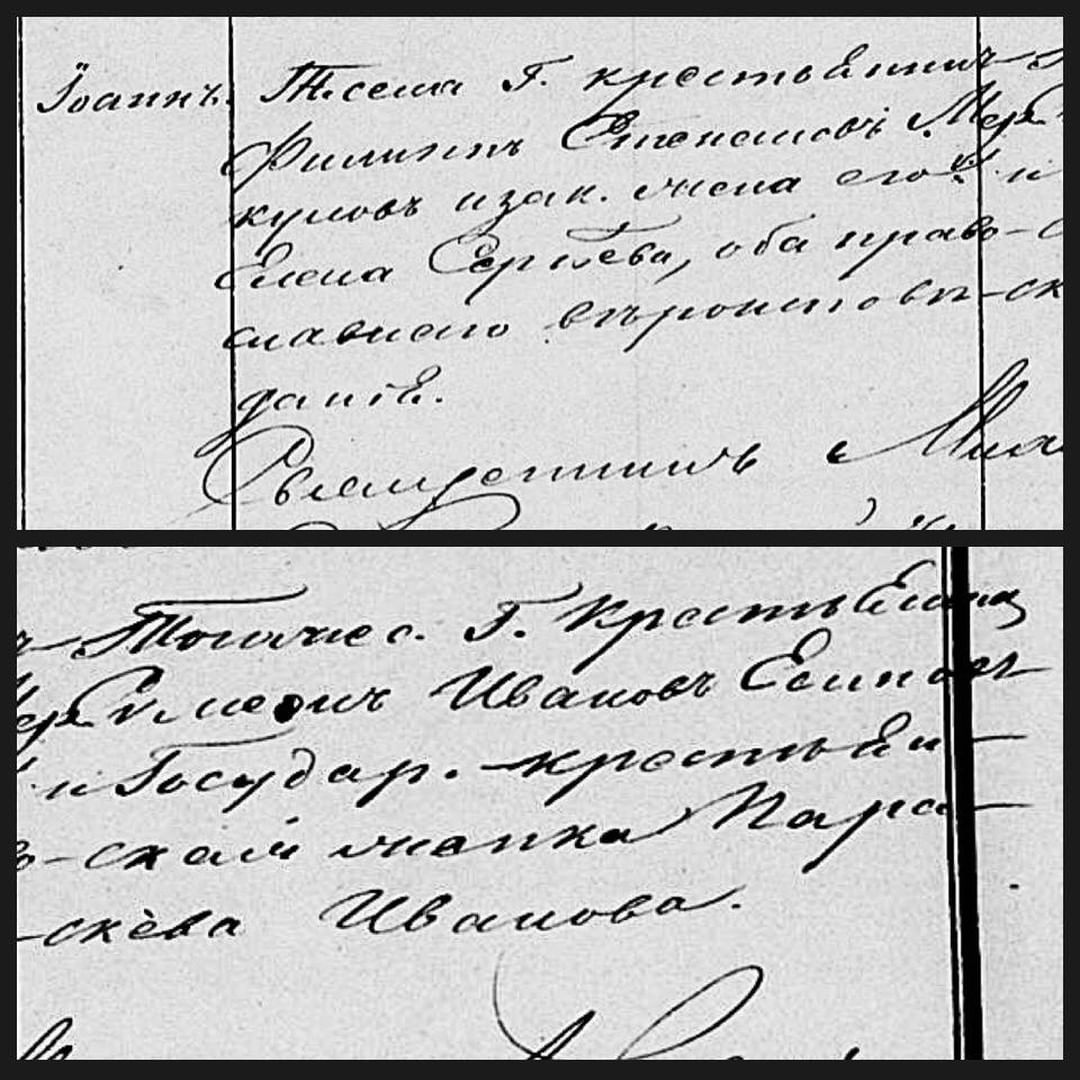 Іоаннъ. Т. села Г. крестьянинъ
Филиппъ Степановъ Мер
куловъ и зак. жена его
Елена Сергѣева, оба право-
славнаго вѣроисповѣ-
данія.
Священникъ Мих
Тогоже с. Г. Крестьянинъ
Ивановъ Есиповъ
и Государ. крестьян-
ская женка Пара-
скева Иванова.